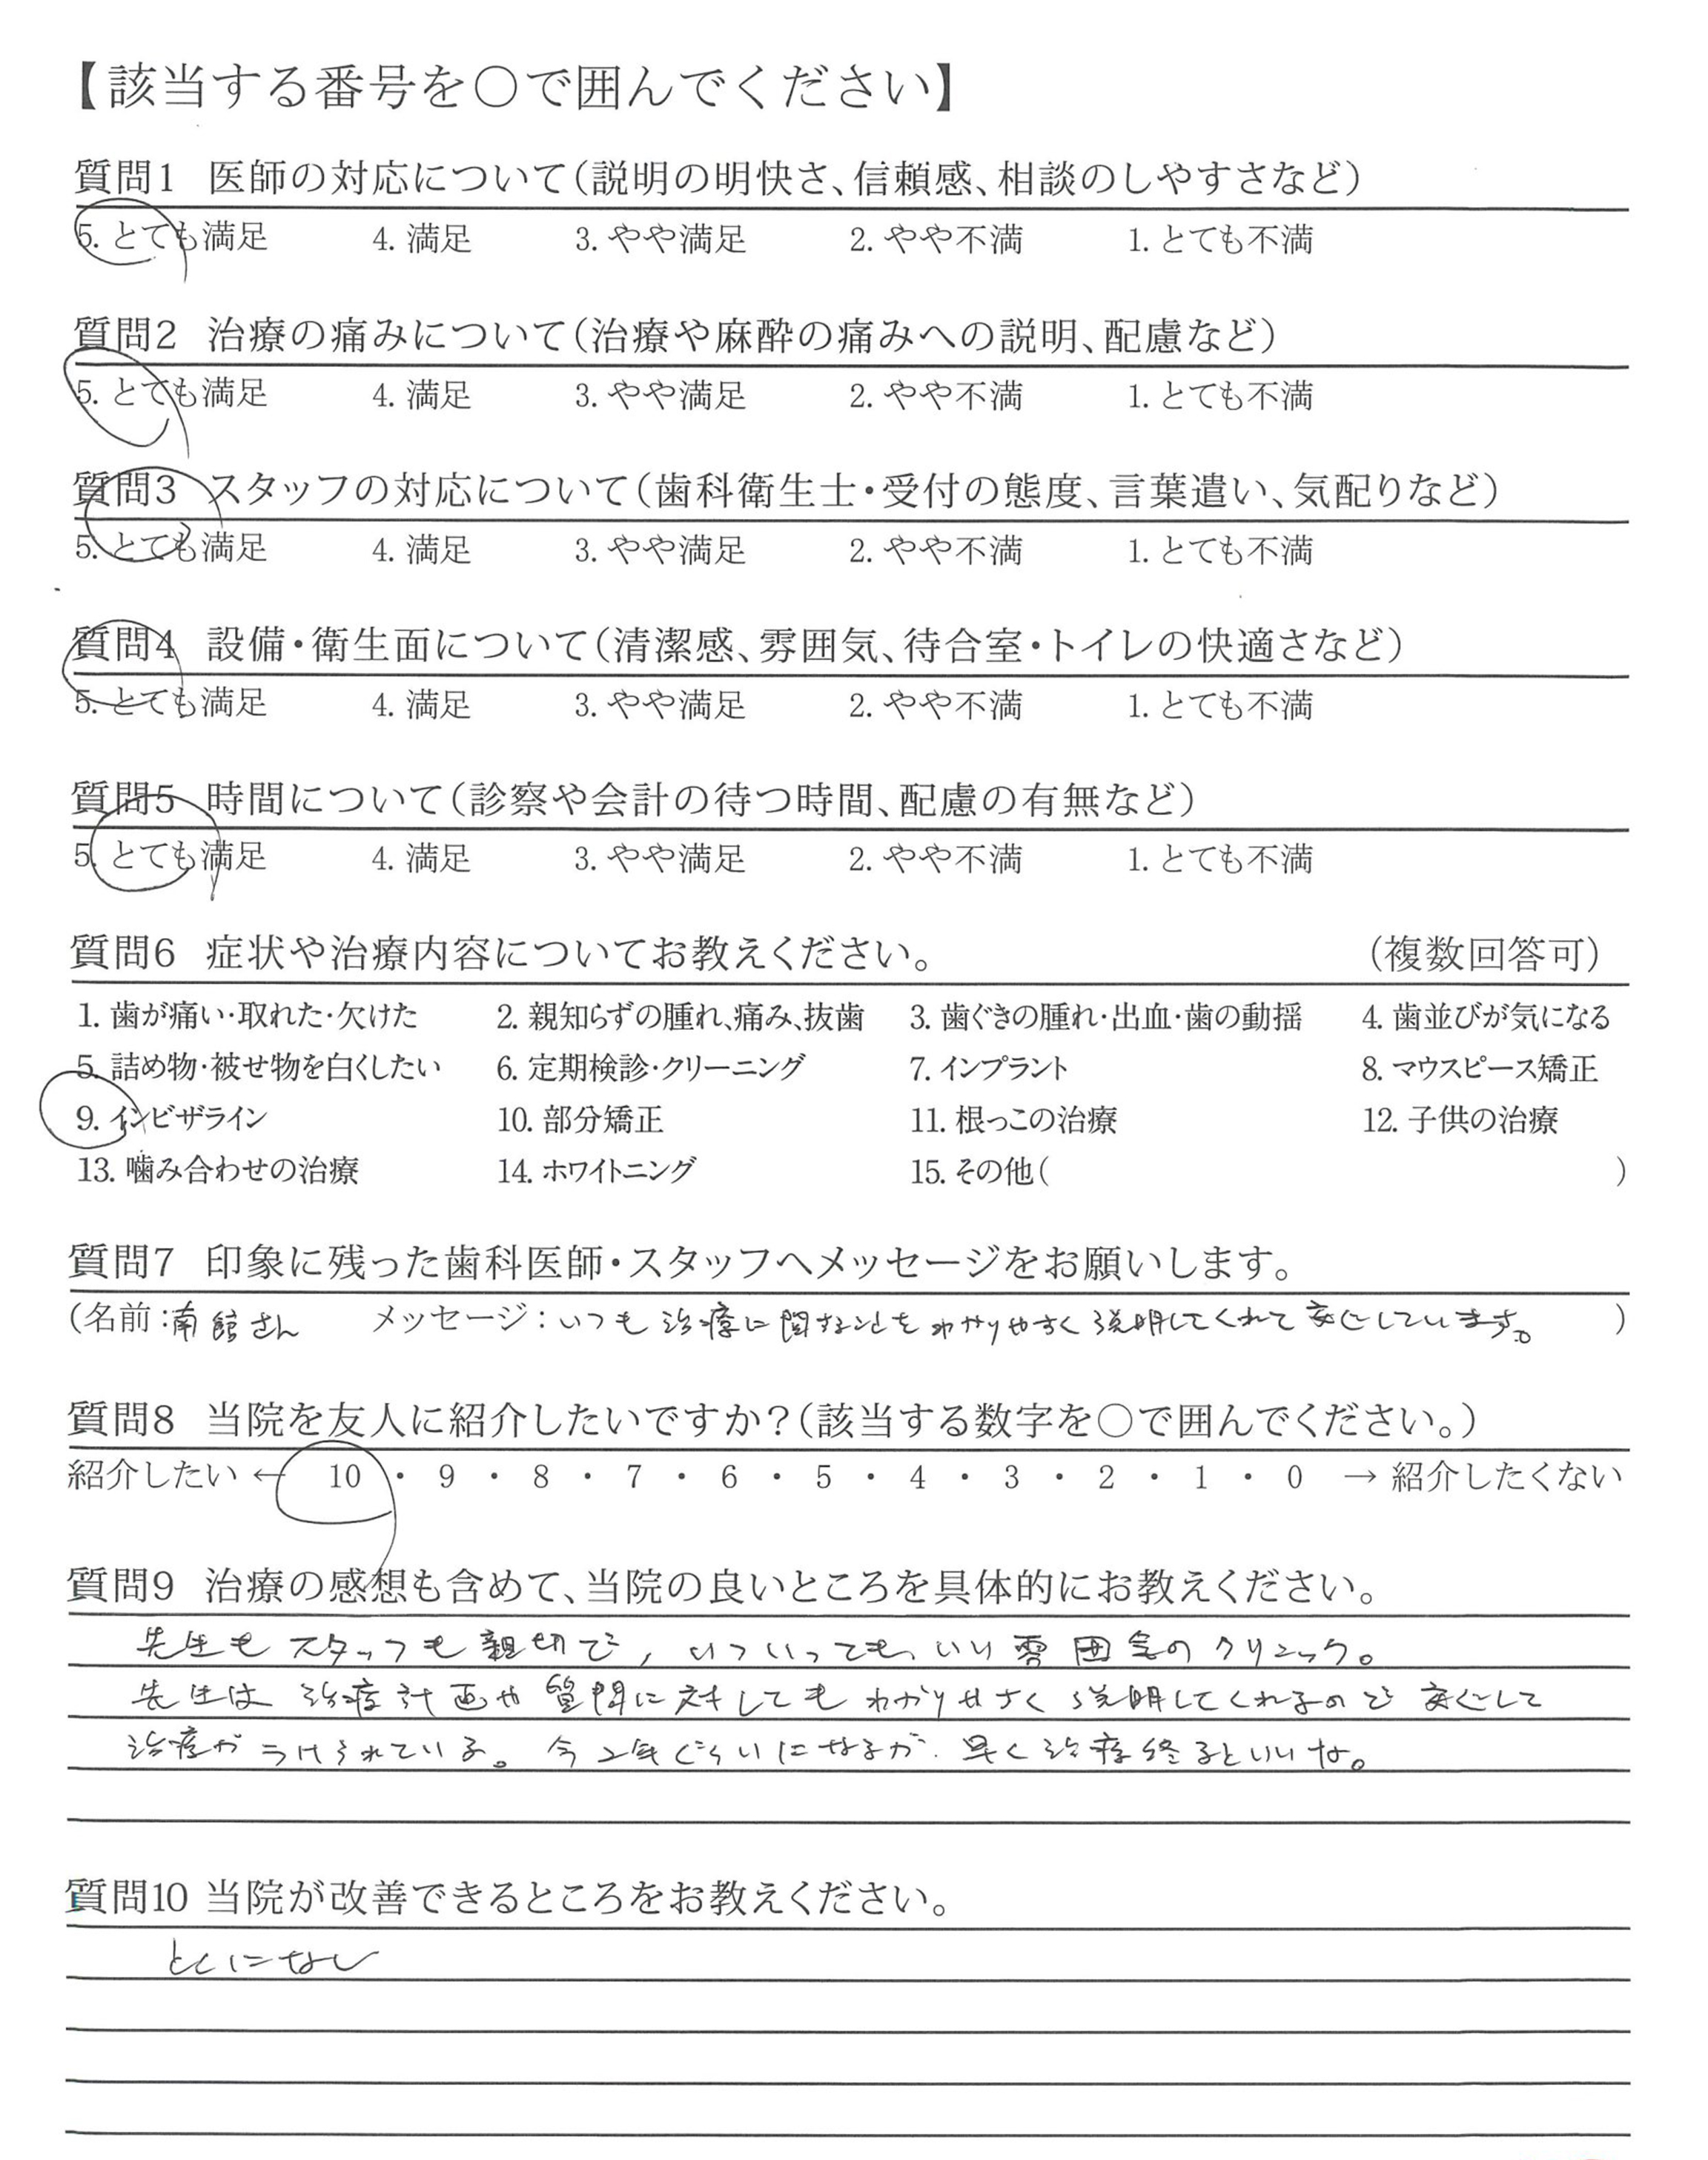 【該当する番号を○で囲んでください】
質問1 医師の対応について(説明の明快さ、信頼感、相談のしやすさなど)
5. とても満足 4. 満足 3. やや満足 2. やや不満 1. とても不満
質問2 治療の痛みについて(治療や麻酔の痛みへの説明、配慮など)
5. とても満足 4. 満足 3. やや満足 2. やや不満 1. とても不満
質問3 スタッフの対応について(歯科衛生士・受付の態度、言葉遣い、気配りなど)
5. とても満足 4. 満足 3. やや満足 2. やや不満 1. とても不満
質問4 設備・衛生面について(清潔感、雰囲気、待合室・トイレの快適さなど)
5. とても満足 4. 満足 3. やや満足 2. やや不満 1. とても不満
質問5 時間について(診察や会計の待つ時間、配慮の有無など)
5. とても満足 4. 満足 3. やや満足 2. やや不満 1. とても不満
質問6 症状や治療内容についてお教えください。 (複数回答可)
1. 歯が痛い・取れた・欠けた 2. 親知らずの腫れ、痛み、抜歯 3. 歯ぐきの腫れ・出血・歯の動揺 4. 歯並びが気になる
5. 詰め物・被せ物を白くしたい 6. 定期検診・クリーニング 7. インプラント 8. マウスピース矯正
9. インビザライン 10. 部分矯正 11. 根っこの治療 12. 子供の治療
13. 噛み合わせの治療 14. ホワイトニング 15. その他( )
質問7 印象に残った歯科医師・スタッフへメッセージをお願いします。
(名前:南舘さん メッセージ:いつも治療に関することをわかりやすく説明してくれて安心しています。 )
質問8 当院を友人に紹介したいですか?(該当する数字を○で囲んでください。)
紹介したい ← 10 ・ 9 ・ 8 ・ 7 ・ 6 ・ 5 ・ 4 ・ 3 ・ 2 ・ 1 ・ 0 → 紹介したくない
質問9 治療の感想も含めて、当院の良いところを具体的にお教えください。
先生もスタッフも親切で、いついってもいい雰囲気のクリニック。
先生は治療計画や質問に対してもわかりやすく説明してくれるので安心して
治療がうけられている。今2年ぐらいになるが、早く治療終るといいな。
質問10 当院が改善できるところをお教えください。
とくになし